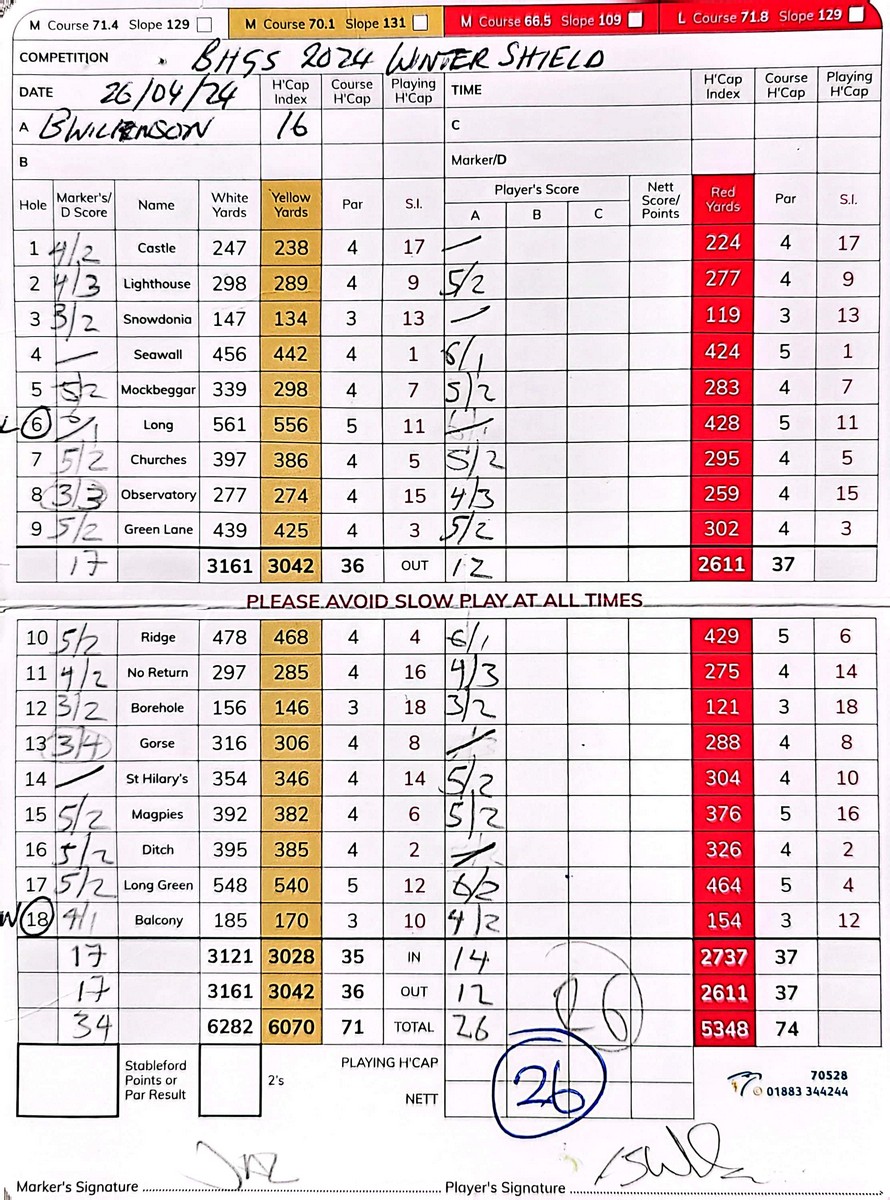 M Course 71.4 Slope 129 M Course 70.1 Slope 131 M Course 66.5 Slope 109 L Course 71.8 Slope 129
COMPETITION BHGS 2024 WINTER SHIELD
DATE 26/04/24 H'Cap Index Course H'Cap Playing H'Cap TIME H'Cap Index Course H'Cap Playing H'Cap
A BWILKENSON 16 C
B Marker/D
Hole Marker's/ D Score Name White Yards Yellow Yards Par S.I. Player's Score A B C Nett Score/ Points Red Yards Par S.I.
1 4/2 Castle 247 238 4 17 — 224 4 17
2 4/3 Lighthouse 298 289 4 9 5/2 277 4 9
3 3/2 Snowdonia 147 134 3 13 — 119 3 13
4 — Seawall 456 442 4 1 6/1 424 5 1
5 5/2 Mockbeggar 339 298 4 7 5/2 283 4 7
L 6 Long 561 556 5 11 428 5 11
7 5/2 Churches 397 386 4 5 5/2 295 4 5
8 3/3 Observatory 277 274 4 15 4/3 259 4 15
9 5/2 Green Lane 439 425 4 3 5/2 302 4 3
17 3161 3042 36 OUT 12 2611 37
PLEASE AVOID SLOW PLAY AT ALL TIMES
10 5/2 Ridge 478 468 4 4 6/1 429 5 6
11 4/2 No Return 297 285 4 16 4/3 275 4 14
12 3/2 Borehole 156 146 3 18 3/2 121 3 18
13 3/4 Gorse 316 306 4 8 288 4 8
14 — St Hilary's 354 346 4 14 5/2 304 4 10
15 5/2 Magpies 392 382 4 6 5/2 376 5 16
16 5/2 Ditch 395 385 4 2 — 326 4 2
17 5/2 Long Green 548 540 5 12 6/2 464 5 4
W 18 4/1 Balcony 185 170 3 10 4/2 154 3 12
17 3121 3028 35 IN 14 2737 37
17 3161 3042 36 OUT 12 2611 37
34 6282 6070 71 TOTAL 26 26 5348 74
Stableford Points or Par Result 2's PLAYING H'CAP
NETT 26
70528
© 01883 344244
Marker's Signature Player's Signature